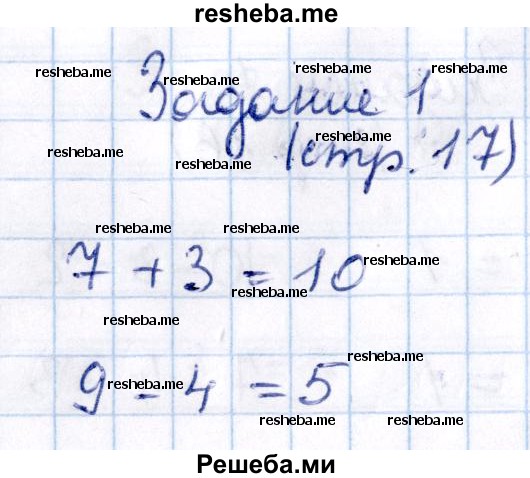 resheba.me
resheba.me resheba.me resheba.me
Задание 1
resheba.me
resheba.me resheba.me
(стр. 17)
resheba.me resheba.me
7 + 3 = 10
resheba.me
resheba.me
resheba.me
resheba.me
9 - 4 = 5
resheba.me
resheba.me resheba.me
Решеба.ми